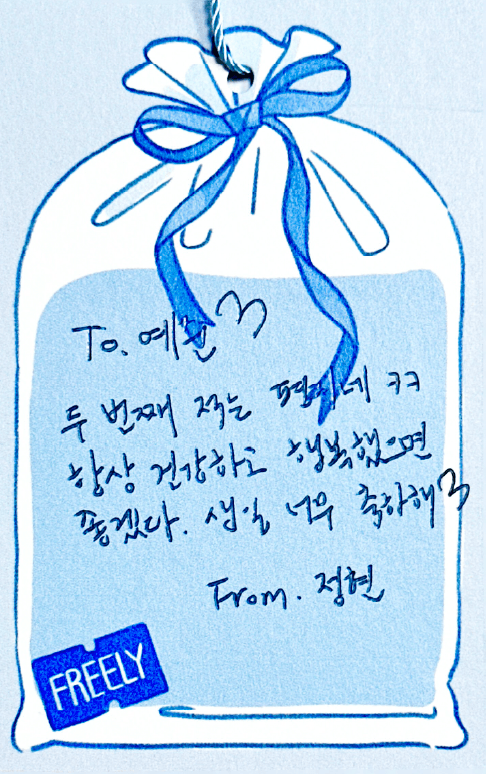 To. 예원♡
두 번째 적는 편지네 ㅋㅋ
항상 건강하고 행복했으면
좋겠다. 생일 너무 축하해♡
From. 정현
FREELY